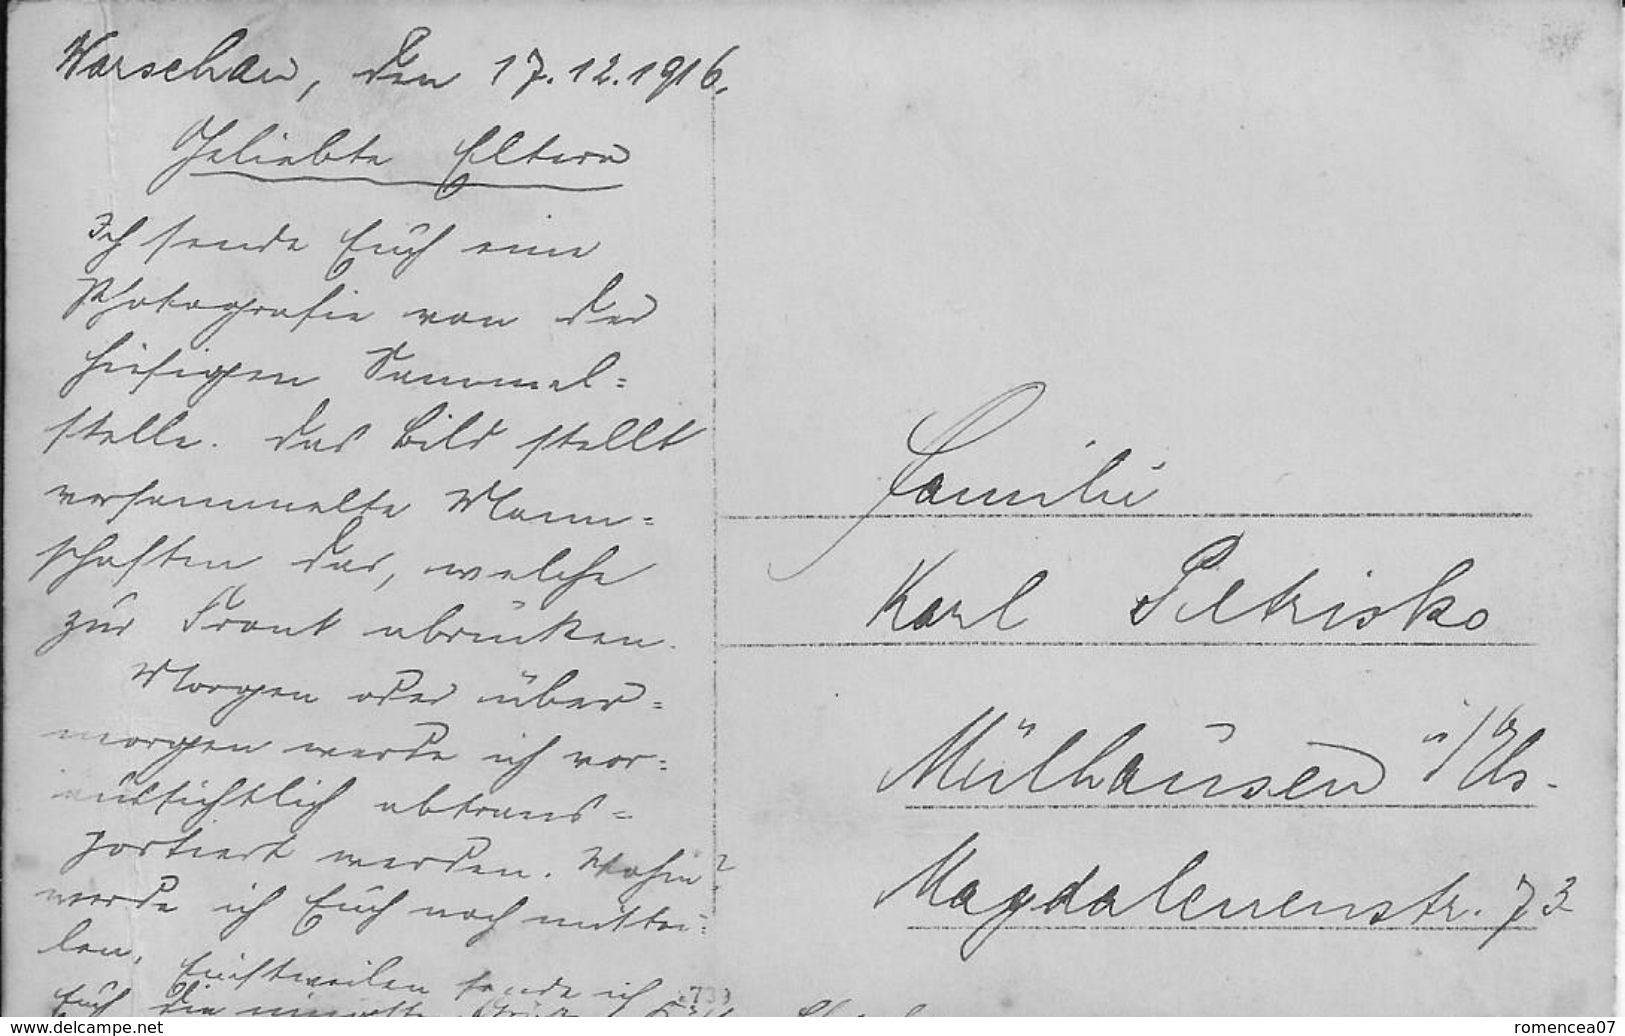 Warschau, den 17.12.1916.
Geliebte Eltern
Ich sende Euch eine
Photografie von der
hiesigen Sammel=
stelle. Das Bild stellt
versammelte Mann=
schaften dar, welche
zur Front abrücken.
Morgen oder über=
morgen werde ich vor=
aussichtlich abtrans=
portiert werden. Wohin?
werde ich Euch noch mittei=
len. Einstweilen sende ich
Euch die
Familie
Karl Petrisko
Mülhausen i/Els.
Magdalenenstr. 73
www.delcampe.net
romencea07